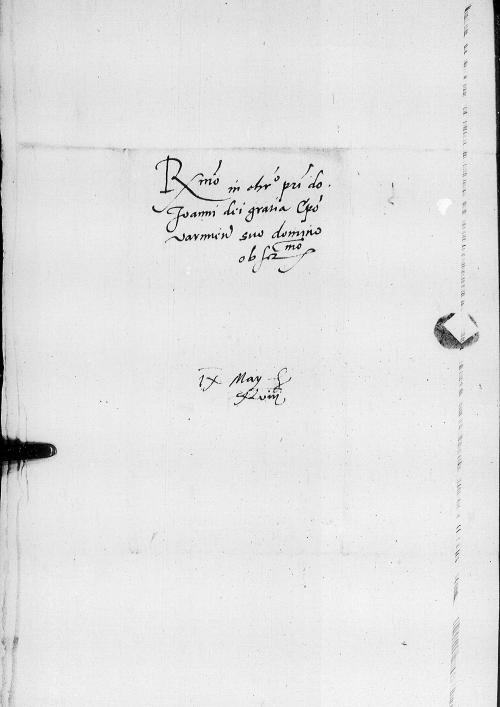 Rmo in chro pri do.
Joanni dei gratia Epo
varmien suo domino
obsermo
IX May
XLviii